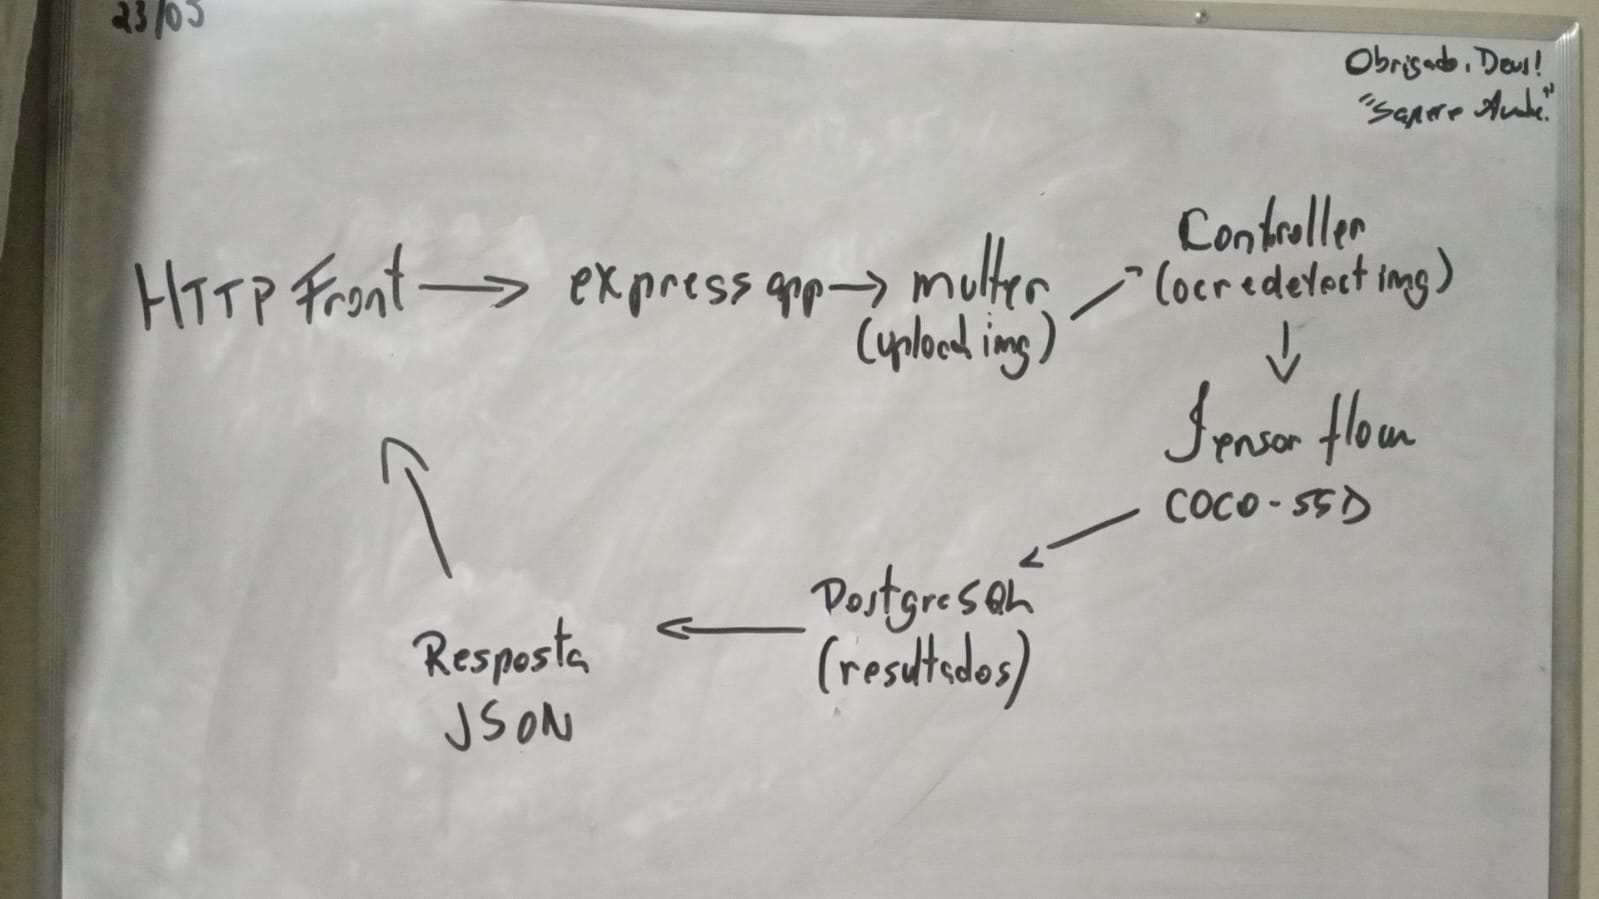 23/05
Obrigado, Deus!
"Sapere Aude."
HTTP Front → express app → multer
(upload img)
Controller
(ocr e detect img)
Tensor flow
COCO-SSD
PostgreSQL
(resultados)
Resposta
JSON